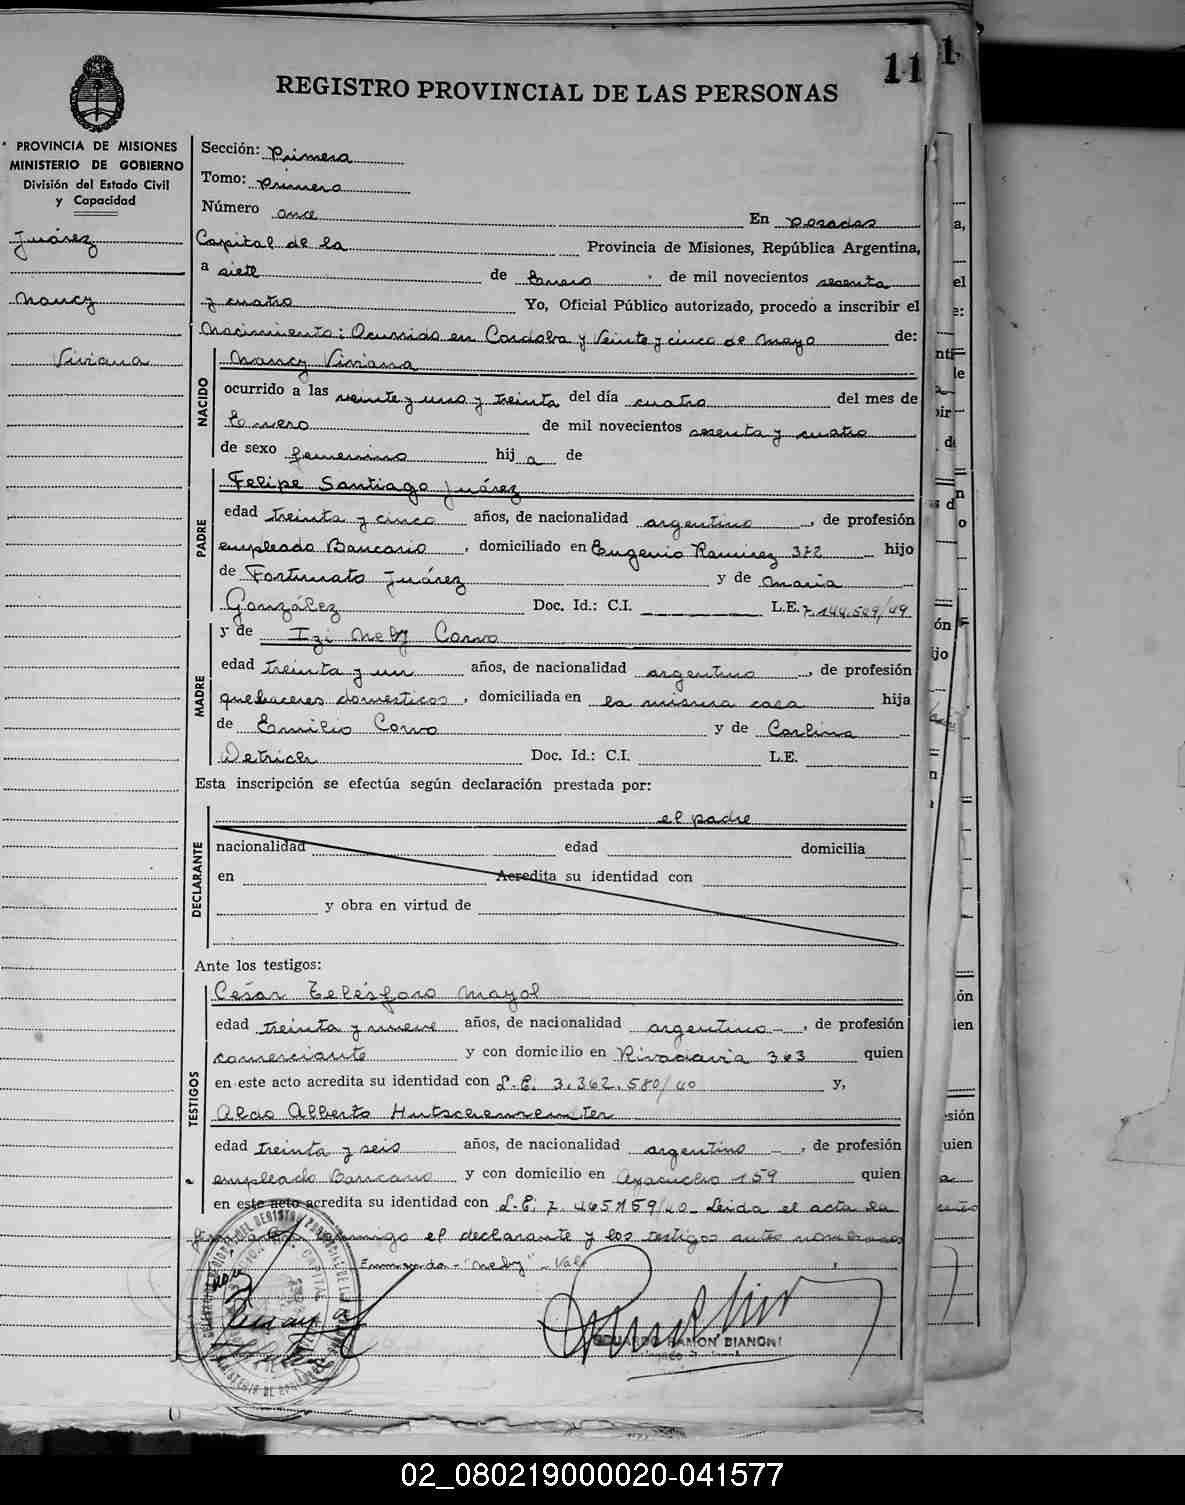 11
1
REGISTRO PROVINCIAL DE LAS PERSONAS
PROVINCIA DE MISIONES
MINISTERIO DE GOBIERNO
División del Estado Civil
y Capacidad
Juárez
Nancy
Viviana
Sección: Primera
Tomo: Primero
Número once En Posadas
Capital de la Provincia de Misiones, República Argentina,
a siete de Enero de mil novecientos sesenta
y cuatro Yo, Oficial Público autorizado, procedo a inscribir el
Nacimiento: Ocurrido en Cordoba y Veinte y cinco de Mayo de:
NACIDO
Nancy Viviana
ocurrido a las veinte y uno y treinta del día cuatro del mes de
Enero de mil novecientos sesenta y cuatro
de sexo femenino hija de
PADRE
Felipe Santiago Juárez
edad treinta y cinco años, de nacionalidad argentino, de profesión
empleado Bancario, domiciliado en Eugenio Ramirez 372 hijo
de Fortunato Juárez y de Maria
González Doc. Id.: C.I. L.E. 7.144.549/49
MADRE
y de Izi Neby Corvo
edad treinta y un años, de nacionalidad argentino, de profesión
quehaceres domesticos, domiciliada en la misma casa hija
de Emilio Corvo y de Carlina
Detrich Doc. Id.: C.I. L.E.
Esta inscripción se efectúa según declaración prestada por:
DECLARANTE
el padre
nacionalidad edad domicilia
en Acredita su identidad con
y obra en virtud de
Ante los testigos:
TESTIGOS
César Telésforo Mayol
edad treinta y nueve años, de nacionalidad argentino, de profesión
comerciante y con domicilio en Rivadavia 363 quien
en este acto acredita su identidad con L.E. 3.362.580/40 y,
Aldo Alberto Hutschenreuter
edad treinta y seis años, de nacionalidad argentino, de profesión
empleado Bancario y con domicilio en Ayacucho 159 quien
en este acto acredita su identidad con L.E. 7.465159/40 Leida el acta la
conmigo el declarante y los testigos antes nombrados
Enmendado - "Neby" - Vale
EDUARDO RAMON BIANCHI
02_080219000020-041577